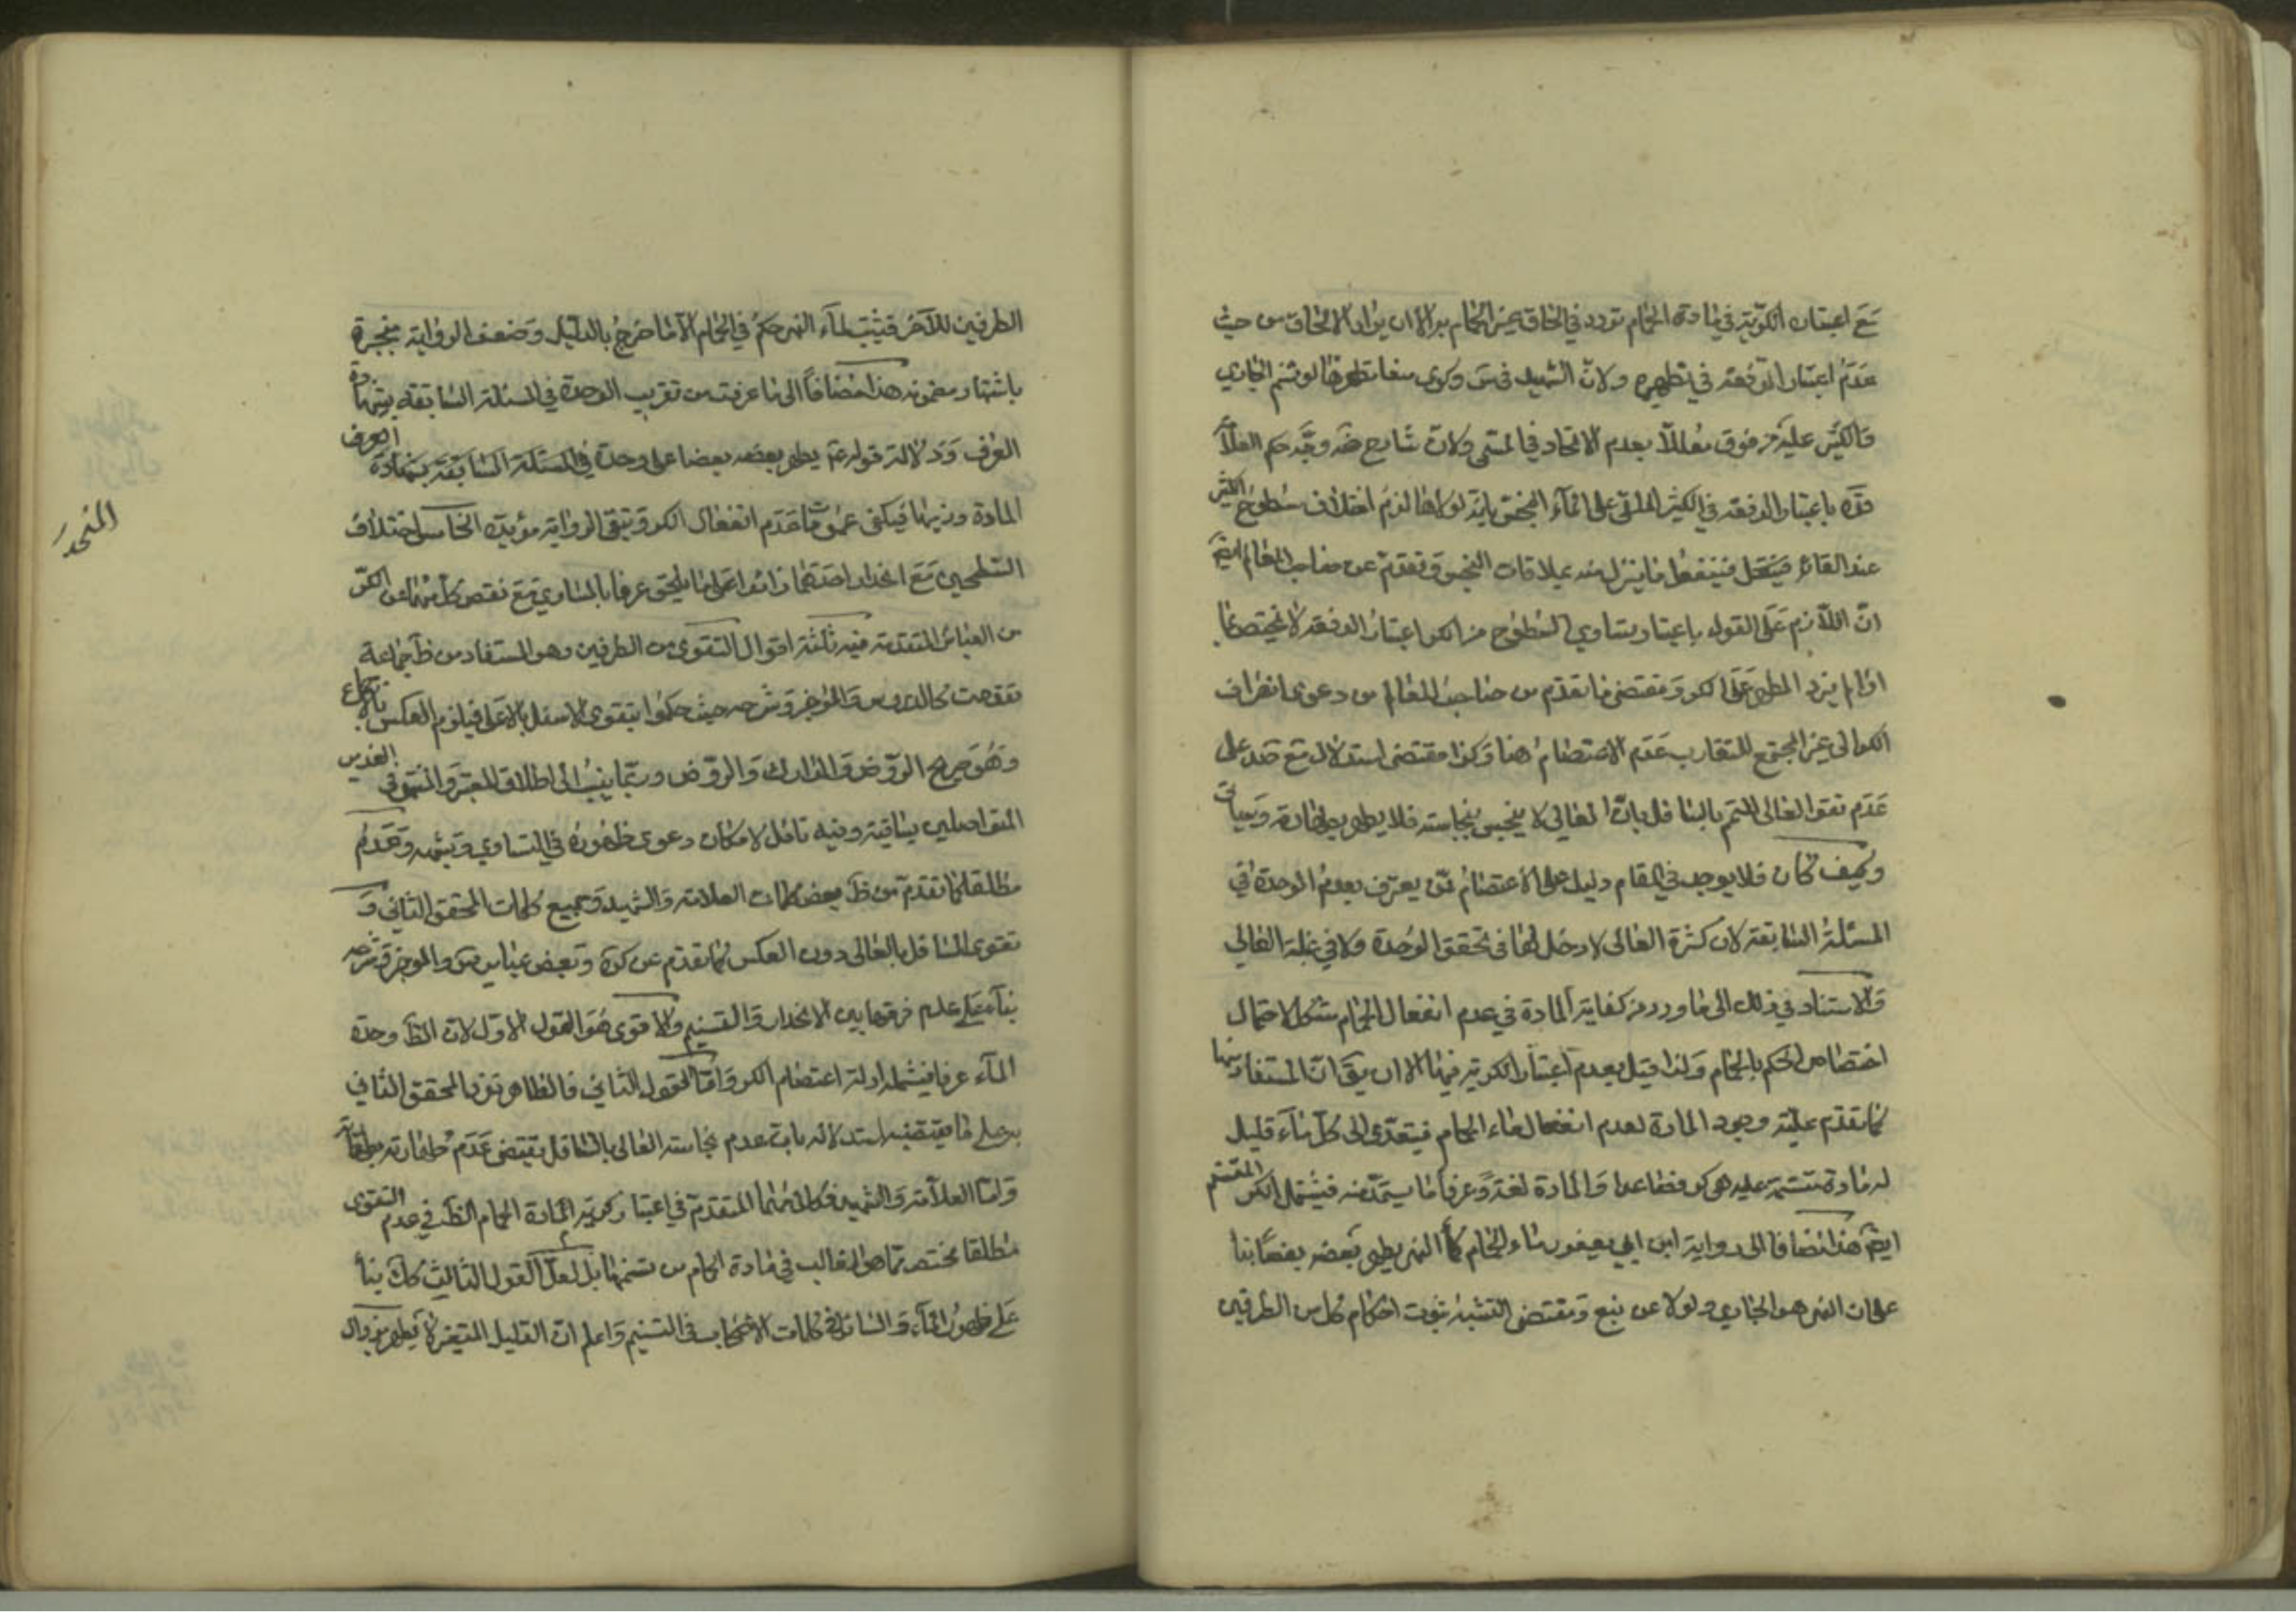 مع اعتبار الكرية في مادة الحمام تردد في الحاق غير الحمام به الا ان يراد الالحاق من حيث
عدم اعتبار الدفعة في تطهيره ولان الشهيد في وكرى تطهرها لو تسنم الجاري
والكثير عليه من فوق معللا بعدم الاتحاد في المسمى ولان شارح ضه وجه حكم العلا
قده باعتبار الدفعة في الكثير الملقى على الماء النجس بانه لولاها لزم اختلاف سطوح الكثير
عند القائه فينفعل ما ينزل منه بملاقات النجس وتقدم عن صاحب المعالم ايضا
ان اللازم على القول باعتبار تساوي السطوح من الكر اعتبار الدفعة لا يختص بما
اذا لم يزد المطهر على الكر ومقتضى ما تقدم من صاحب المعالم من دعوى انصراف
الكر الى غير المجتمع المتقارب عدم الاعتصام هنا وكذا مقتضى استدلال مع صد على
عدم تقو العالى المتمم بالسافل بان العالي لا ينجس بنجاسته فلا يطهر بطهارته وسياتى
وكيف كان فلا يوجد في المقام دليل على الاعتصام لمن يعترف بعدم الوحدة في
المسئلة السابقة لان كثرة العالى لا دخل لها في تحقق الوحدة ولا في غلبة العالي
والاستناد في ذلك الى ما ورد من كفاية المادة في عدم انفعال الحمام مشكل لاحتمال
اختصاص الحكم بالحمام ولذا قيل بعدم اعتبار الكرية فيها الا ان يق ان المستفاد منها
كما تقدم علية وجود المادة لعدم انفعال ماء الحمام فيتعدى الى كل ماء قليل
له مادة متسنمة عليه هى كر فصاعدا والمادة لغة وعرفا ما يستمد منه فيشمل الكر المتسنم
ايضا هذا مضافا الى رواية ابن ابي يعفور ماء الحمام كماء النهر يطهر بعضه بعضا بناء
على ان النهر هو الجاري ولو لا عن نبع ومقتضى التشبيه ثبوت احكام كل من الطرفين
الطرفين للاخر فيثبت لماء النهر حكم في الحمام الا ما خرج بالدليل وضعف الرواية منجبرة
باشتهار مضمونه هذا مضافا الى ما عرفت من تقريب الوحدة في المسئلة السابقة بشهادة
العرف ودلالة قوله عم يطهر بعضه بعضا على وحدة في المسئلة السابقة بشهادة العرف
المادة وذيها فيكفى عموم ما عدم انفعال الكر وتبقى الرواية مؤيدة الخامس اختلاف
السطحين مع انحدار احدهما زائدا على ما يلحق عرفا بالمساوي مع نقص كل منهما عن الكر
من العبائر المتقدمة فيه ثلثة اقوال التقوى من الطرفين وهو المستفاد من ظ جماعة
تقدمت كالدروس والموجز وشرحه حيث حكموا بتقوى الاسفل بالاعلى فيلزم العكس بالاجماع
وهو صريح الروض والمدارك والروض وربما ينسب الى اطلاق المعتبر والمنتهى في الغديرين
المتواصلين بساقية وفيه تامل لامكان دعوى ظهوره في التساوي وشبهه وعدم
مطلقا كما تقدم من ظ بعض كلمات العلامة والشهيد وجميع كلمات المحقق الثاني و
تقوى السافل بالعالى دون العكس كما تقدم عن كره وبعض عبائر س والموجز وشرحه
بناء على عدم فرقها بين الانحدار والتسنيم والاقوى هو القول الاول لان الظ وحدة
الماء عرفا فيشمله ادلة اعتصام الكر واما القول الثاني فالظاهر تفرد المحقق الثاني
به على ما يقتضيه استدلاله بان عدم نجاسة العالى بالسافل يقتضى عدم طهارته مطلقا
واما العلامة والشهيد فكلامهما المتقدم في اعتبار كرية المادة الحمام الظ في عدم التقوى
مطلقا مختص بما هو الغالب في مادة الحمام من تسنمها بل لعل القول الثالث كك بناء
على ظهور الماء والسافل في كلمات الاصحاب في التسنيم واعلم ان القليل المتغير لا يطهر بزوال
المنحدر